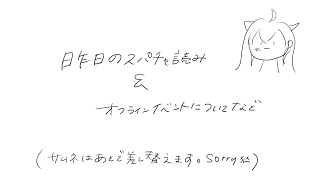 日昨日のスパチャ読み
&
オフラインイベントについてなど
(サムネはあとで差し替えます。sorry絵)